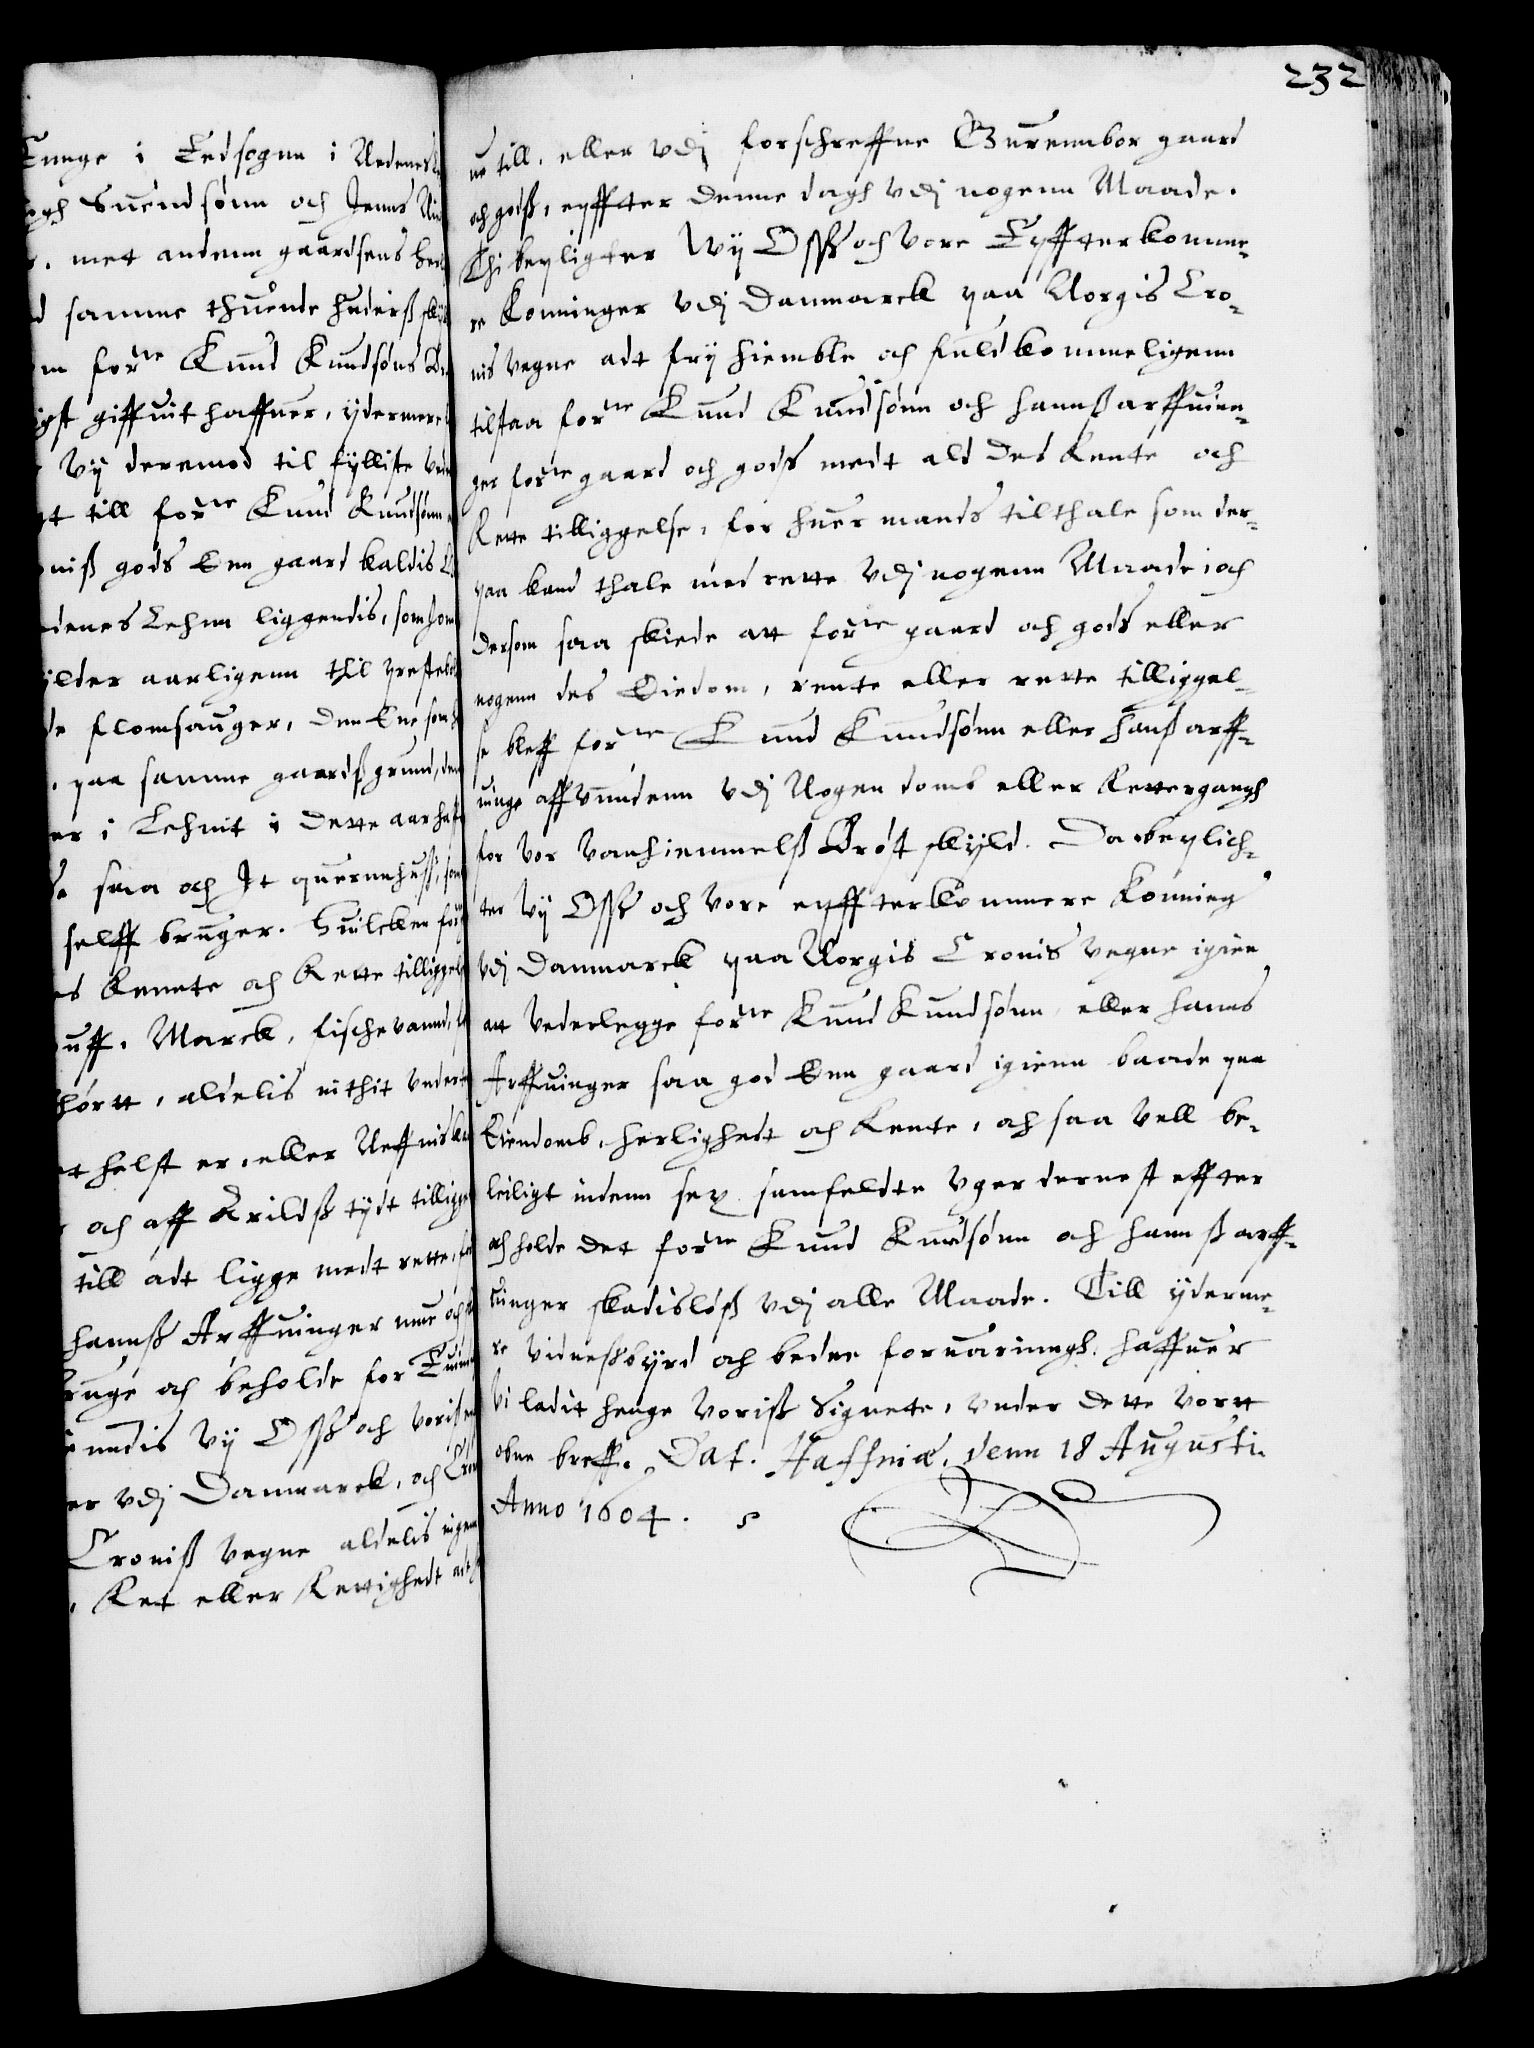 Tunge i Eedsogne i Nedenes
Suendsønn och Jenns
met andenn gaardsens
samme thuende huderß
forne Knud Knudsøns
giffuit haffuer, ydermere
Vy deremod til fylliste
till forne Knud Knudsønn
gods Een gaard kaldis
Lehnn liggendis, som
aarligenn thil
flomsauger, den Ene som
paa samme gaardß grund, den
er i Lehnit i dette aar
saa och It quernehuß, som
selff bruger. Huilcken
Rennte och Rette
Marck, fischevannd,
aldelis inthit
helst er, eller Neffnis
och aff Arildß tydt
till adt ligge medt rette
hannß Arffuinger
och beholde for
Vy Oss och voriß
er vdj Danmarck, och
Croniß vegne aldelis ingen
Ret eller Rettighedt
232
ne till. eller vdj forschreffne Gurennbor gaard
och godß, eyffter denne dagh vdj nogenn Maade.
Thi bepligter Wy Oss och vore Eyffterkomme-
re Konninger vdj Danmarck paa Norgis Cro-
nis vegne adt fry hiemble och fuldkommeligenn
tilstaa forne Knud Knudsønn och hannß arffuin-
ger forne gaard och gods medt ald des Rente och
Rette tilliggelse, for huer mands tilthale som der-
paa kand thale med rette vdj nogenn Maade, och
dersom saa skiede att forne gaard och gods eller
nogenn des Eiedom, rente eller rette tilliggel-
se bleff forne Knud Knudsønn eller hanß arff-
uinge affvundenn vdj Nogen domb eller Rettergangh
for vor vanhiemmelß Brøst skyld. Da beplich-
ter vy Oss och vore eyffterkommere Konning
vdj Danmarck paa Norgis Cronis vegne igien
att vederlegge forne Knud Knudsønn, eller hanns
Arffuinger saa god Een gaard igienn baade paa
Eiendomb, herlighedt och Rennte, och saa vell be-
leiligt indenn sex samfeldte vger dernest effter
och holde det forne Knud Knudsønn och hannß arff-
uinger skadisløß vdj alle Maade. Till yderme-
re vidneßbyrd och bedre foruaringh haffuer
vi ladit henge voriß Signette, vnder dette vortt
obne breff. Dat. Haffniæ, denn 18 Augusti.
Anno 1604.